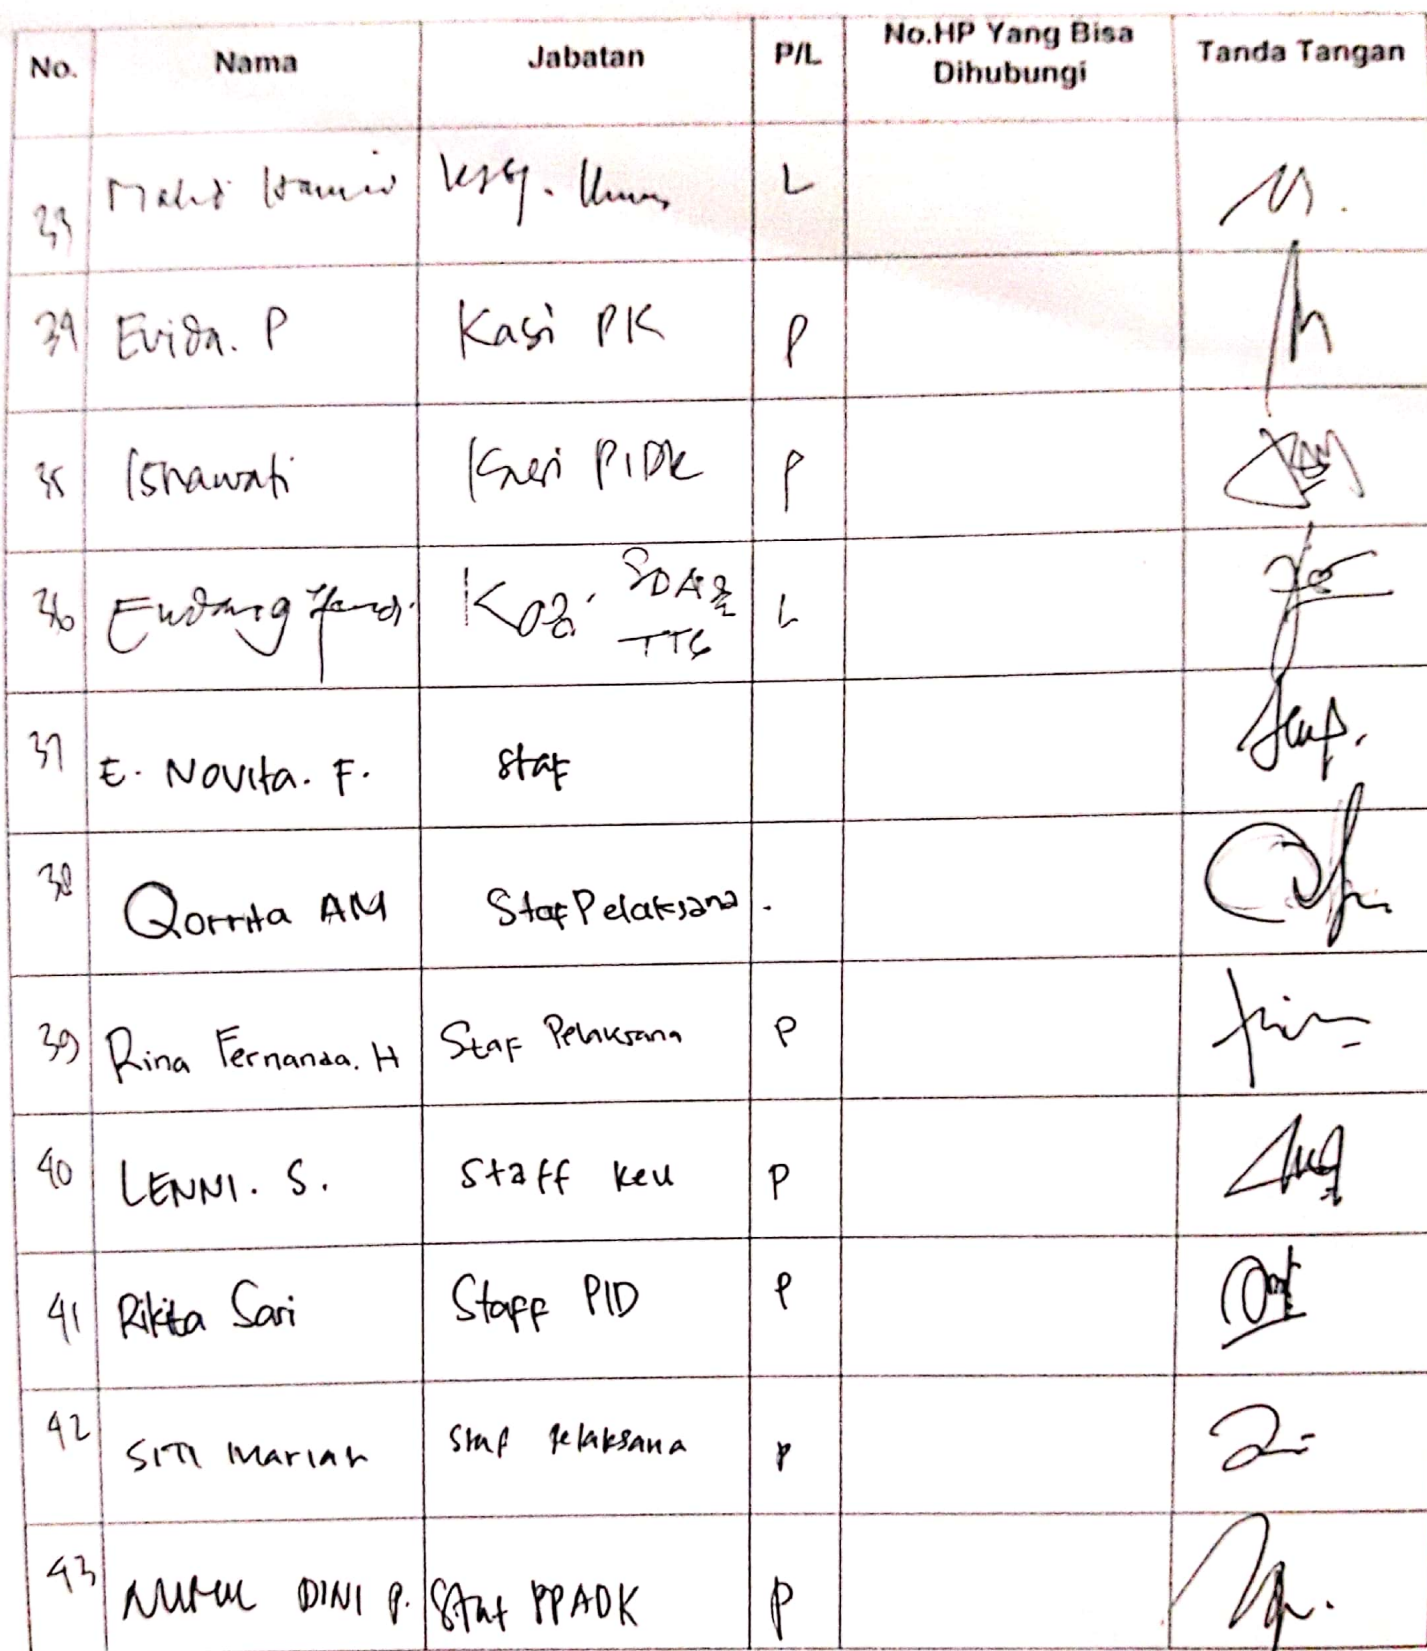 No. Nama Jabatan P/L No.HP Yang Bisa Dihubungi Tanda Tangan
33 Hamid L
34 Evida. P Kasi PK P
35 Isnawati Kasi PIDK P
36 Endang Kasi. SDA & TTG L
37 E. Novita. F. Staf
38 Qorrita AM Staf Pelaksana .
39 Rina Fernanda. H Staf Pelaksana P
40 LENNI. S. Staff keu P
41 Rikita Sari Staff PID P
42 SITI Mariah Staf Pelaksana P
43 NURUL DINI P. Staf PPADK P